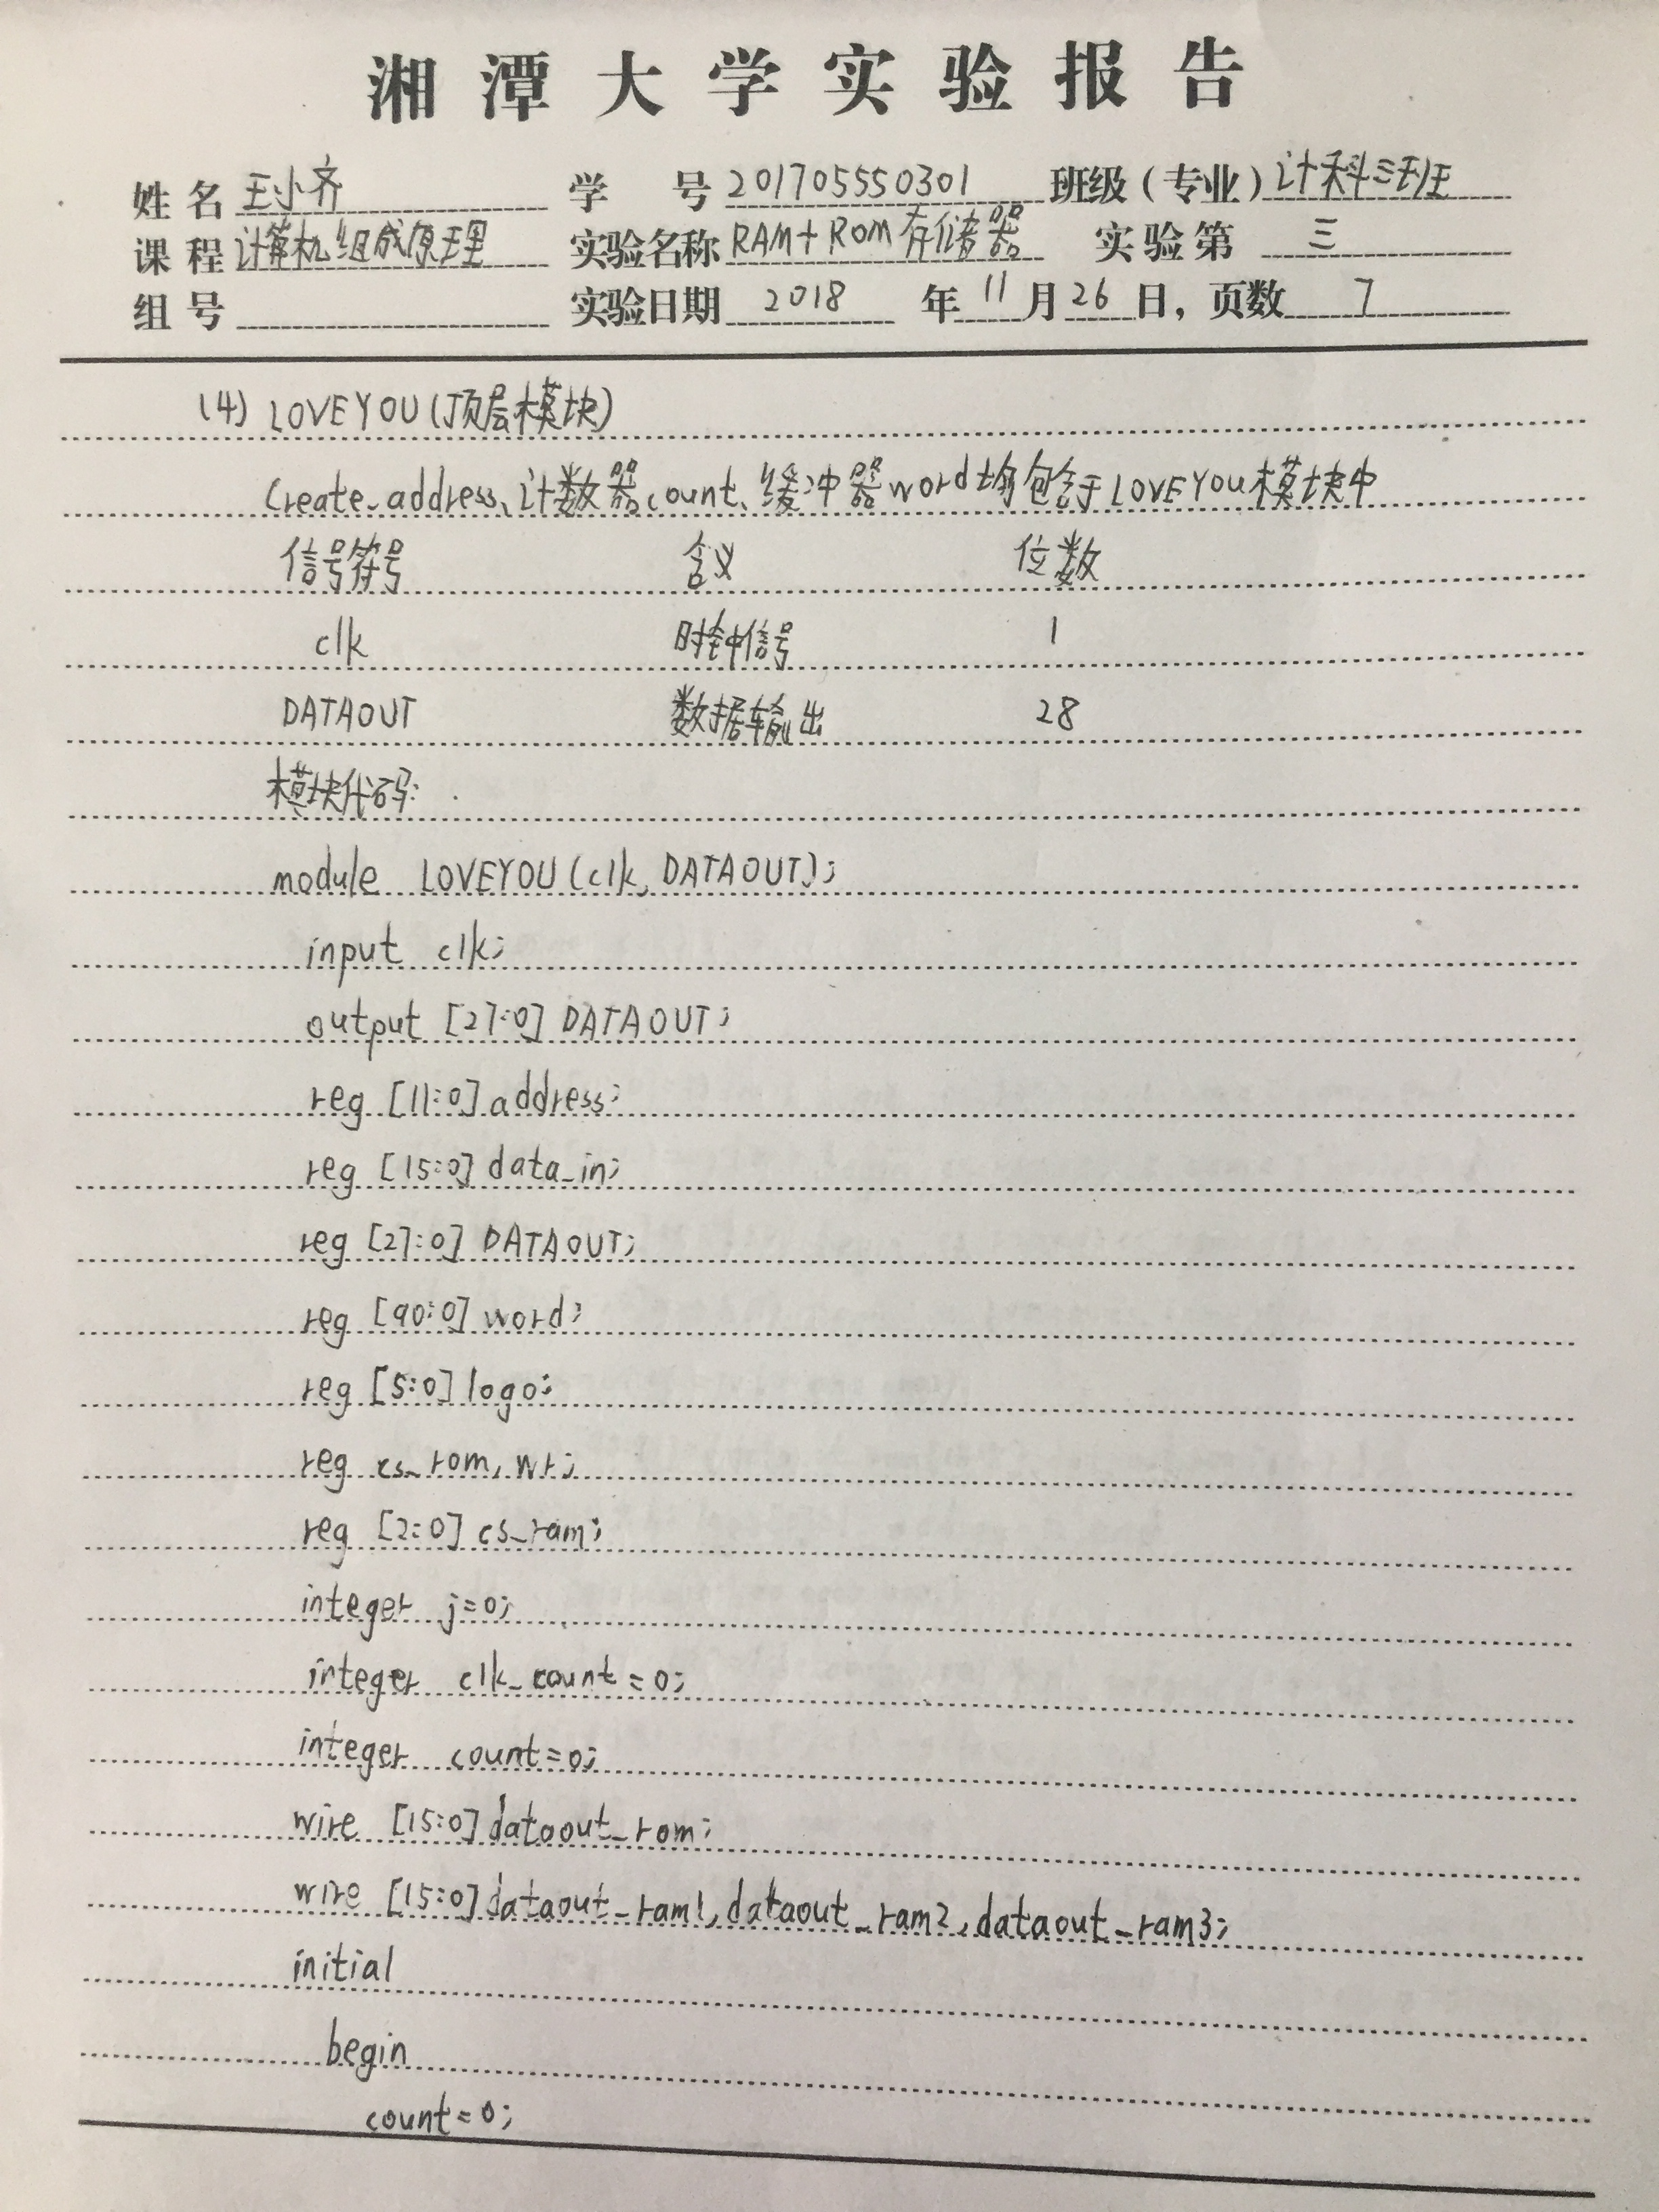 湘潭大学实验报告
姓名 王小齐 学号 201705550301 班级(专业) 计科三班
课程 计算机组成原理 实验名称 RAM+ROM存储器 实验第 三
组号 实验日期 2018 年 11 月 26 日, 页数 7
(4) LOVEYOU(顶层模块)
Create_address、计数器count、缓冲器word均包含于LOVEYOU模块中
信号符号 含义 位数
clk 时钟信号 1
DATAOUT 数据输出 28
模块代码:
module LOVEYOU(clk, DATAOUT);
input clk;
output [27:0] DATAOUT;
reg [11:0] address;
reg [15:0] data_in;
reg [27:0] DATAOUT;
reg [90:0] word;
reg [5:0] logo;
reg cs_rom, wr;
reg [2:0] cs_ram;
integer j=0;
integer clk_count=0;
integer count=0;
wire [15:0] dataout_rom;
wire [15:0] dataout_ram1, dataout_ram2, dataout_ram3;
initial
begin
count=0;